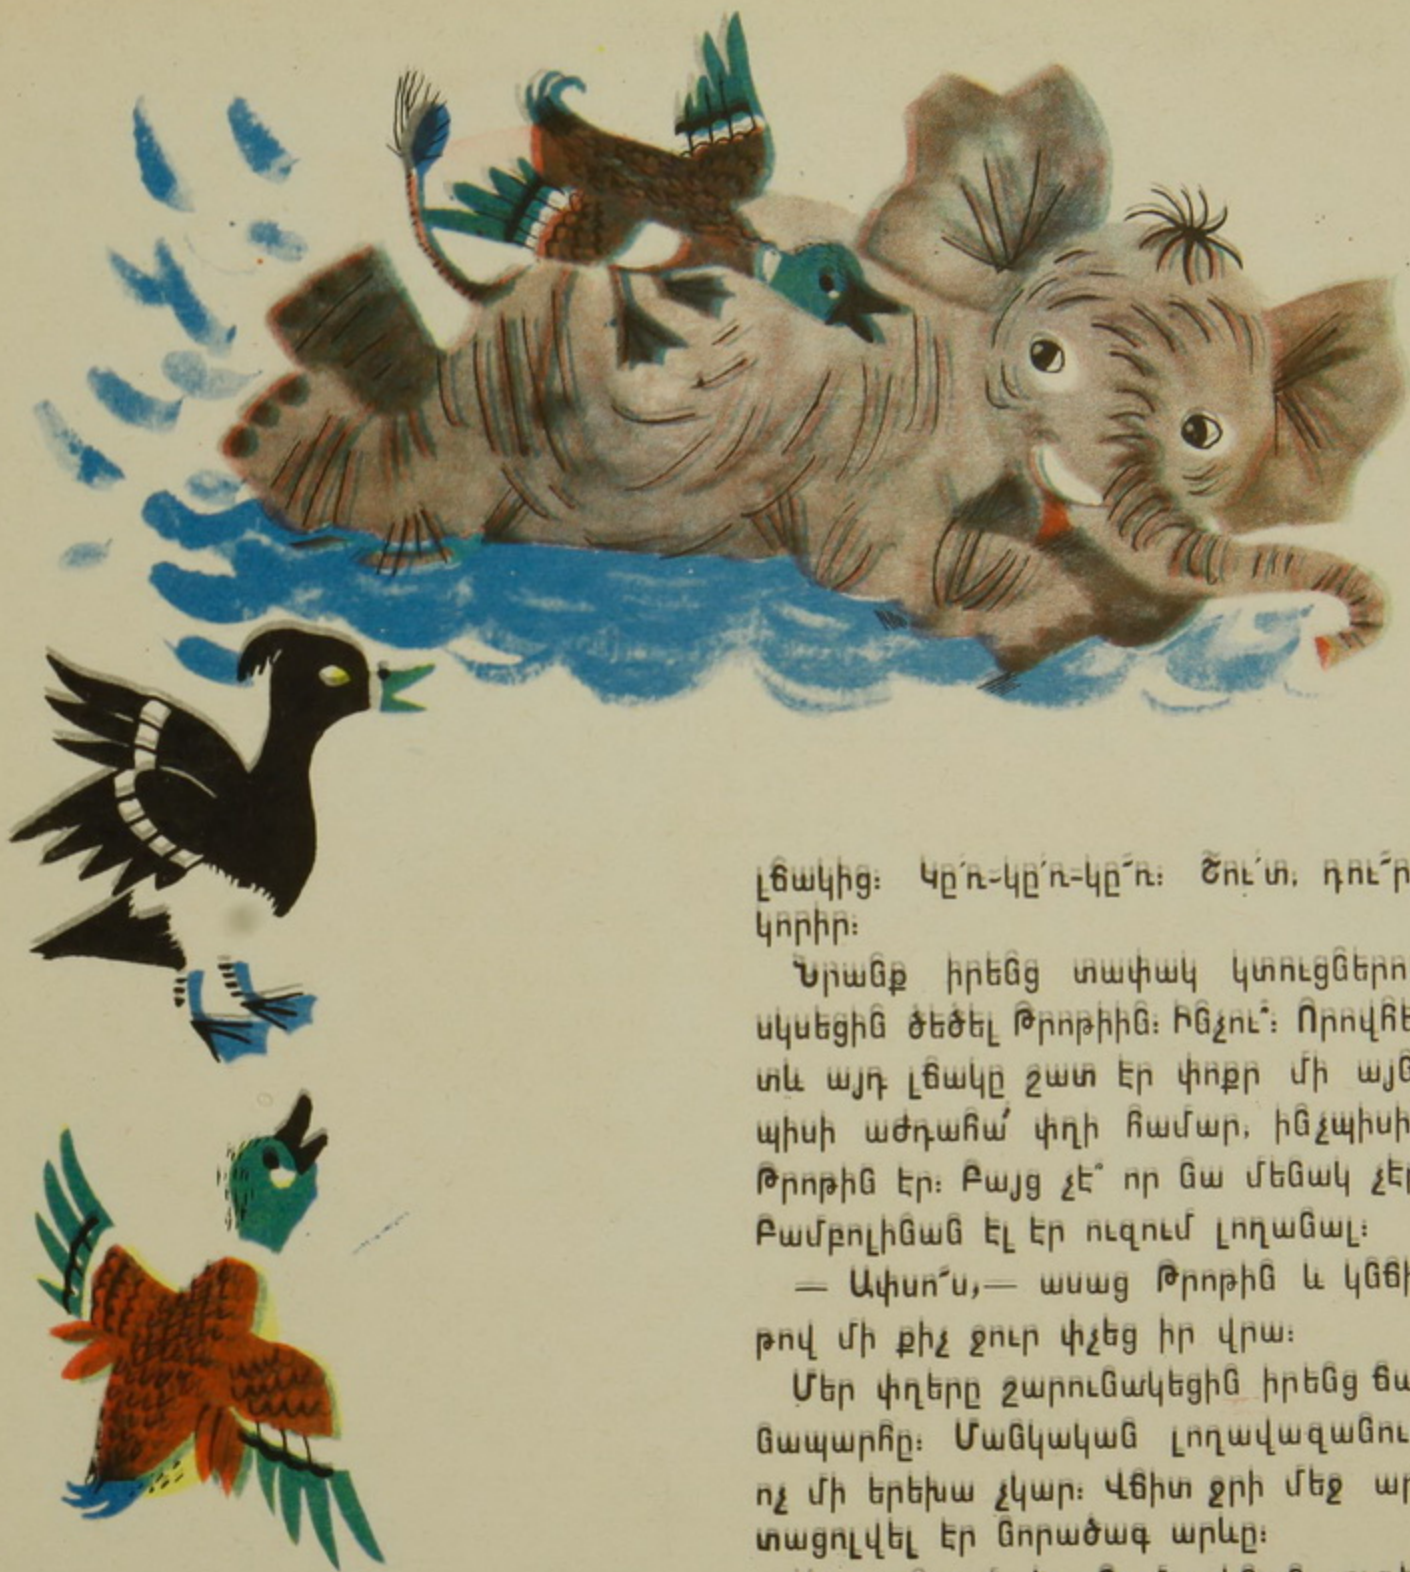 լճակից։ Կը՛ռ-կը՛ռ-կը՜ռ։ Շու՛տ, դու՜ր
կորիր։
Նրանք իրենց տափակ կտուցներո
սկսեցին ծեծել Թրոթիին։ Ինչու՞։ Որովհե
տև այդ լճակը շատ էր փոքր մի այն
պիսի աժդահա՛ փղի համար, ինչպիսի
Թրոթին էր։ Բայց չէ՞ որ նա մենակ չէր
Բամբոլինան էլ էր ուզում լողանալ։
— Ափսո՜ս,— ասաց Թրոթին և կնճի
թով մի քիչ ջուր փչեց իր վրա։
Մեր փղերը շարունակեցին իրենց ճա
նապարհը։ Մանկական լողավազանու
ոչ մի երեխա չկար։ Վճիտ ջրի մեջ ար
տացոլվել էր նորածագ արևը։